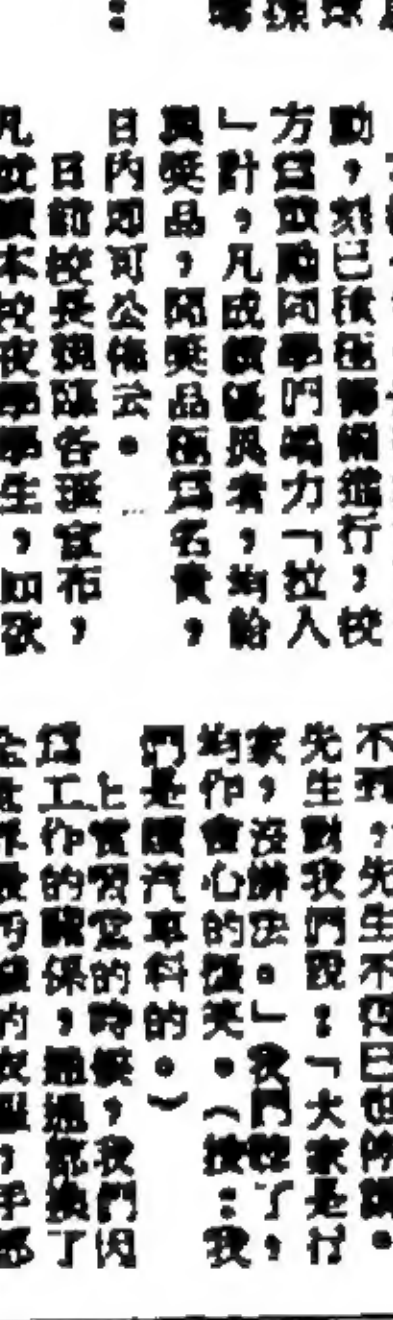 動，刻已積極籌備進行，校
方為鼓勵同學們努力「拉人
」計，凡成績優異者，均給
與獎品，聞獎品極為名貴，
日內即可公佈云。
日前校長親臨各班宣布，
凡就讀本校夜學學生，如欲
不到，先生不得已也停課。
先生對我們說：「大家是行
家，沒辦法。」我們聽了，
均作會心的微笑。（按：我
們是讀汽車科的。）
上實習堂的時候，我們因
為工作的關係，通通都換了